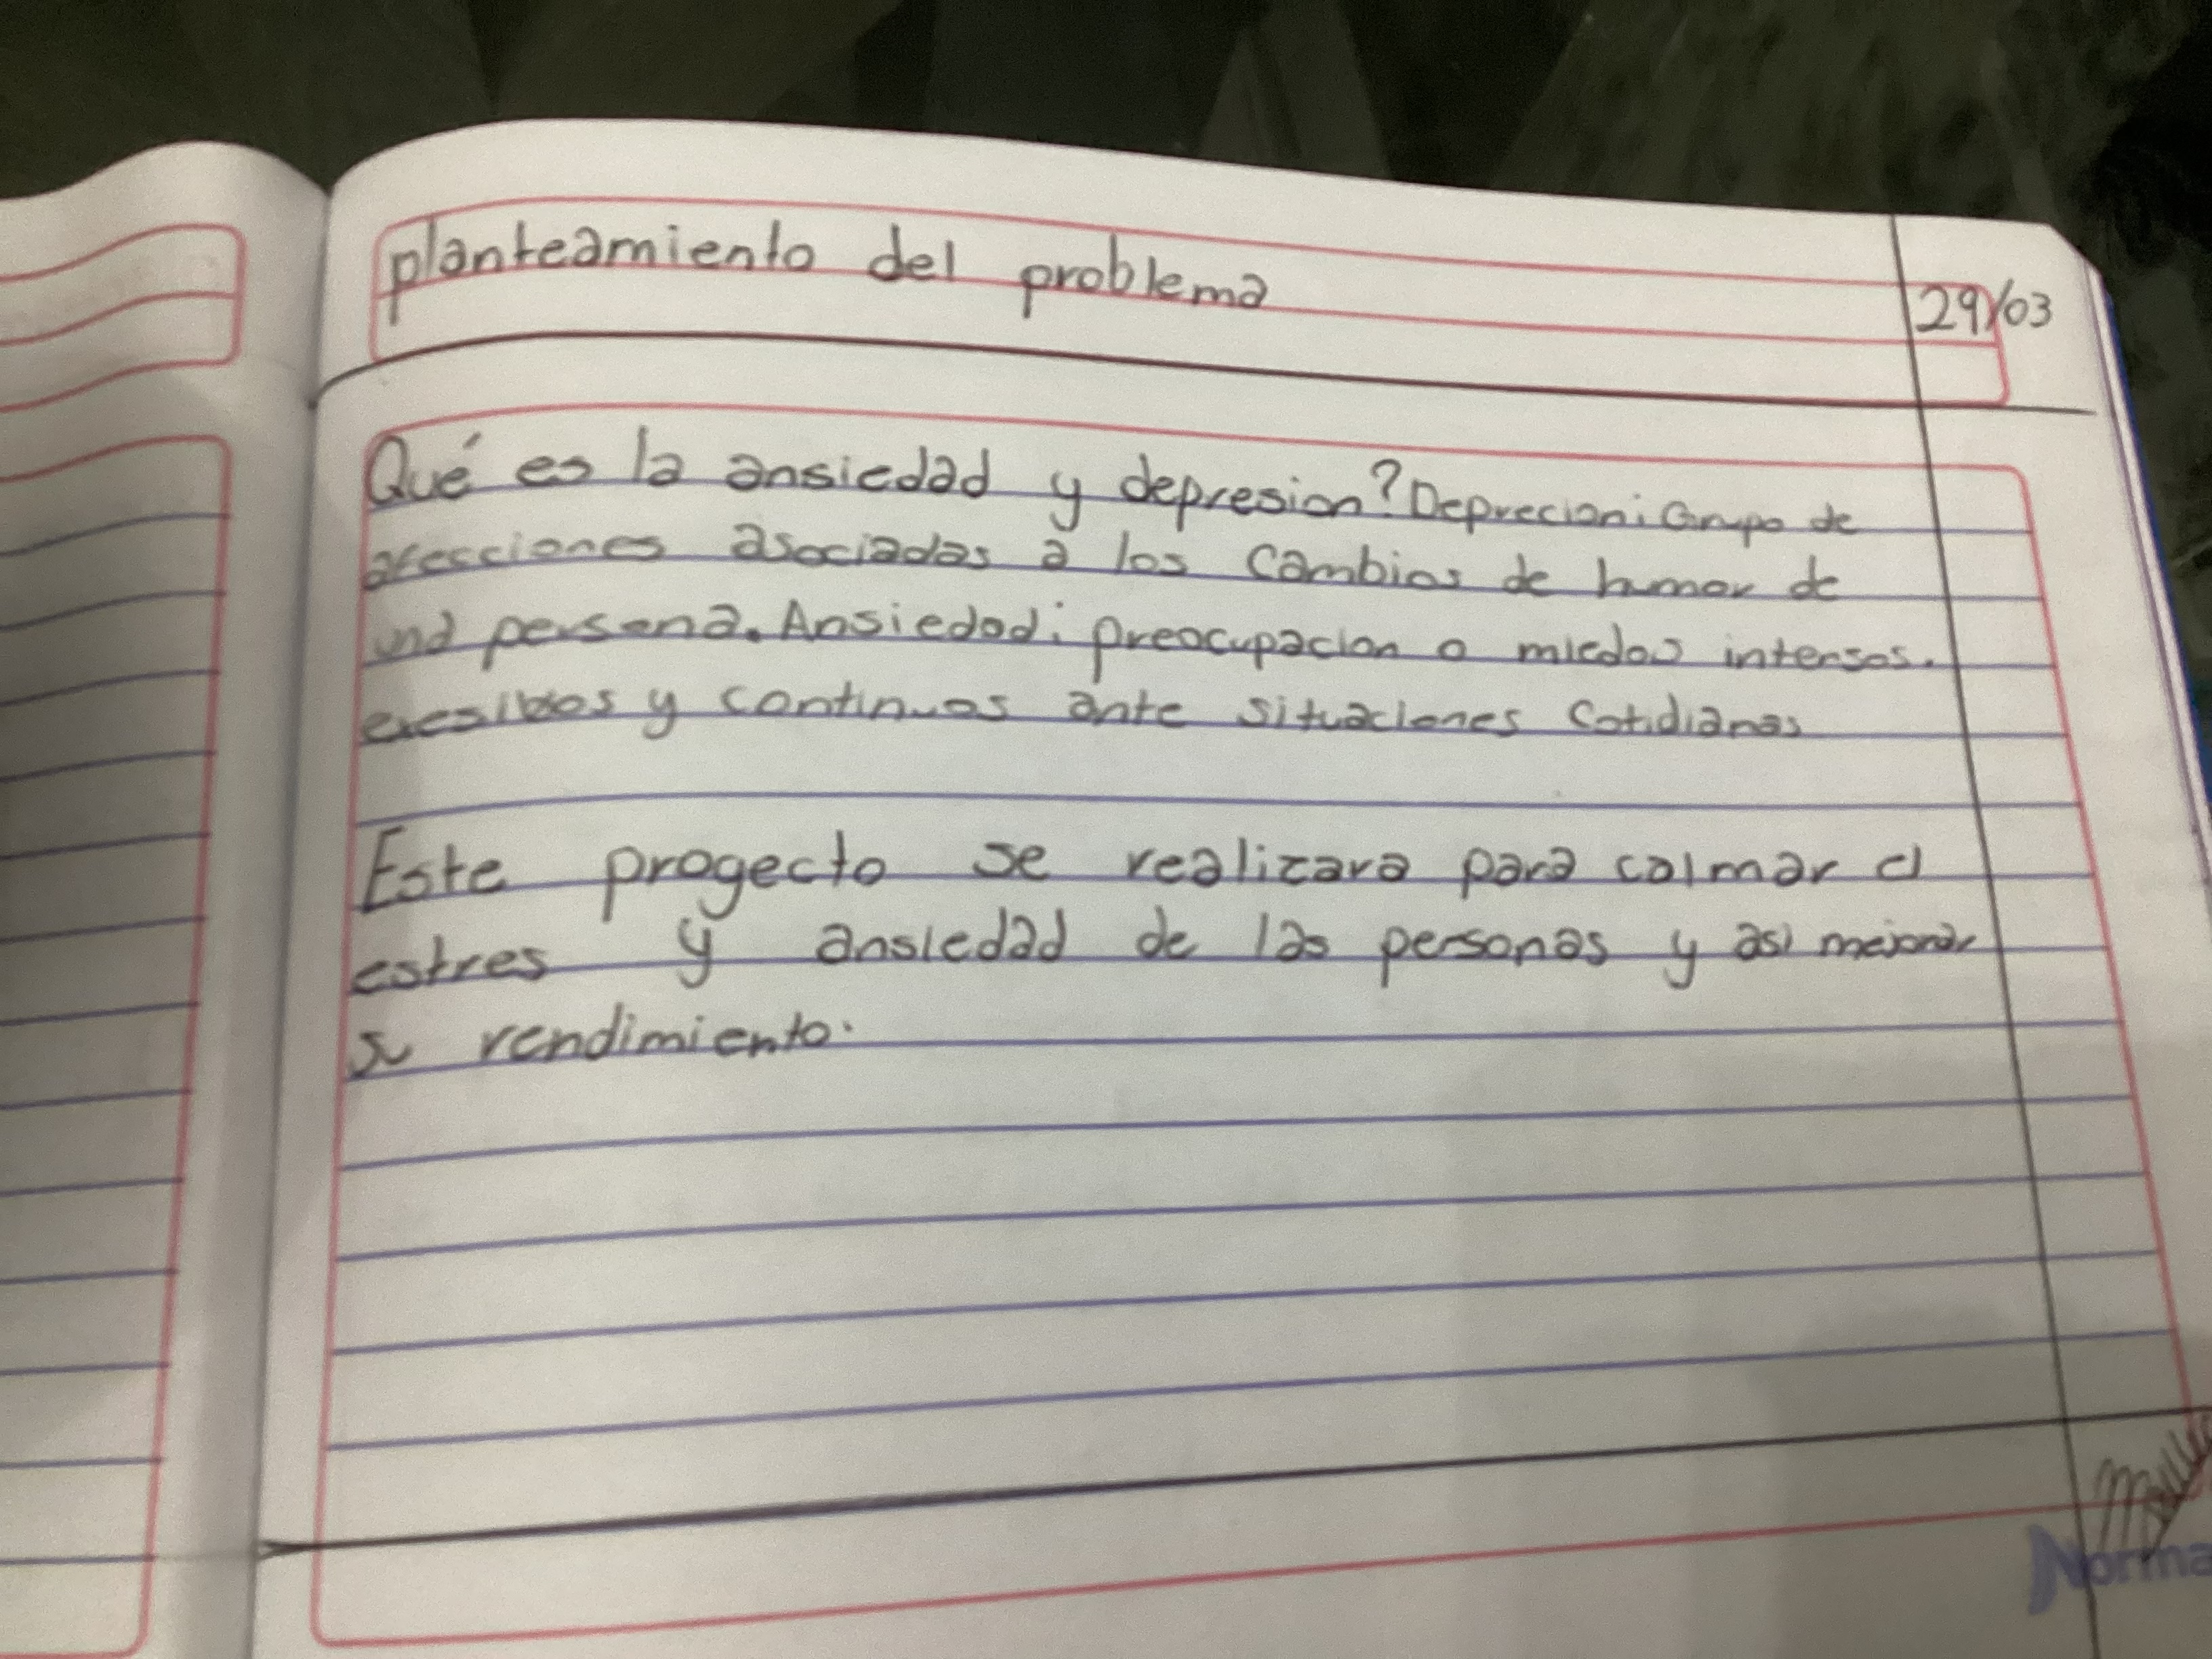 planteamiento del problema
29/03
Qué es la ansiedad y depresion? Deprecion: Grupo de
afecciones asociadas a los cambios de humor de
una persona. Ansiedad: preocupacion o miedos intensos.
exesibos y continuos ante situaciones cotidianas
Este progecto se realizara para calmar el
estres y ansiedad de las personas y asi mejorar
su rendimiento.
Norma